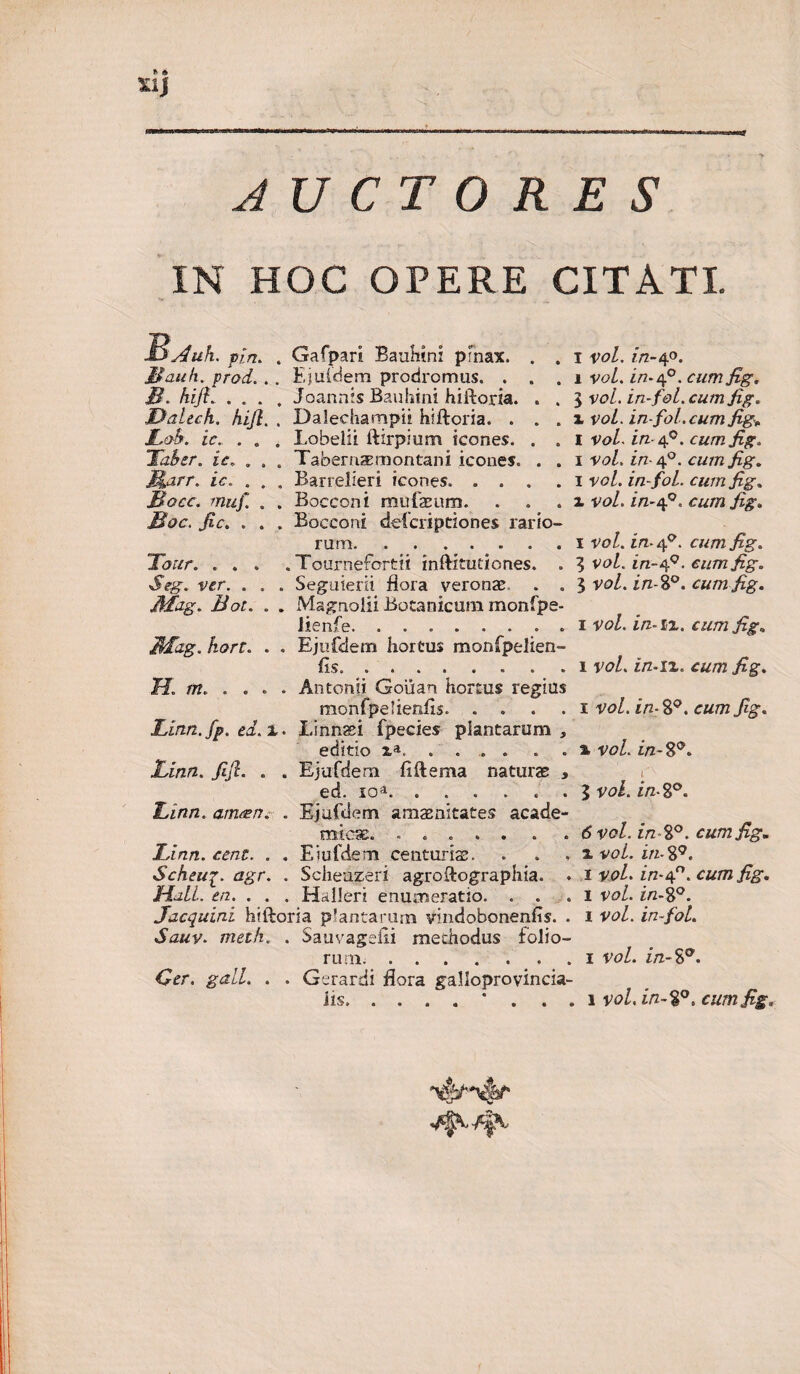 xij
AUCTORES
IN HOC OPERE CITATI.
BAuh. pin. . Gaſpari Bauhini pinax. . . 1 vol. in-4°.
Bauh. prod. . . Ejuſdem prodromus. . . . 1 vol. in-4°. cum fig.
B. hiſt. . . . . Joannis Bauhini hiſtoria. . . 3 vol. in-fol. cum fig.
Dalech. hiſt. . Dalechampii hiſtoria. . . . 2 vol. in-fol. cum fig.
Lob. ic. . . . Lobelii ſtirpium icones. . . 1 vol. in-4°. cum fig.
Taber. ic. . . . Tabernæmontani icones. . . 1 vol. in-4°. cum fig.
Barr. ic. . . . Barrelieri icones. . . . . 1 vol. in-fol. cum fig.
Bocc. muſ. . . Bocconi muſæum. . . . 2 vol. in-4°. cum fig.
Boc. ſic. . . . Bocconi deſcriptiones rario-
rum. . . . . . . . 1 vol. in-4°. cum fig.
Tour. . . . . Tournefortii inſtitutiones. . 3 vol. in-4°. cum fig.
Seg. ver. . . . Seguierii flora veronæ. . . 3 vol. in-8°. cum fig.
Mag. Bot. . . Magnolii Botanicum monſpe-
lienſe. . . . . . . . . 1 vol. in-12. cum fig.
Mag. hort. . . Ejuſdem hortus monſpelien-
ſis. . . . . . . . . 1 vol. in-12. cum fig.
H. m. . . . . Antonii Goüan hortus regius
monſpelienſis. . . . . 1 vol. in-8°. cum fig.
Linn. ſp. ed. 2. Linnæi ſpecies plantarum,
editio 2ª. . . . . . . 2 vol. in-8°.
Linn. ſiſt. . . Ejuſdem ſiſtema naturæ,
ed. 10ª. . . . . . . 3 vol. in-8°.
Linn. amæn. . Ejuſdem amænitates acade-
micæ. . . . . . . . 6 vol. in-8°. cum fig.
Linn. cent. . . Eiuſdem centuriæ. . . . 2 vol. in-8°.
Scheuʒ. agr. . Scheuzeri agroſtographia. . 1 vol. in-4°. cum fig.
Hall. en. . . . Halleri enumeratio. . . . 1 vol. in-8°.
Jacquini hiſtoria plantarum vindobonenſis. . 1 vol. in-fol.
Sauv. meth. . Sauvageſii methodus folio-
rum. . . . . . . . 1 vol. in-8°.
Ger. gall. . . Gerardi flora galloprovincia-
lis. . . . . . . . . 1 vol. in-8°. cum fig.